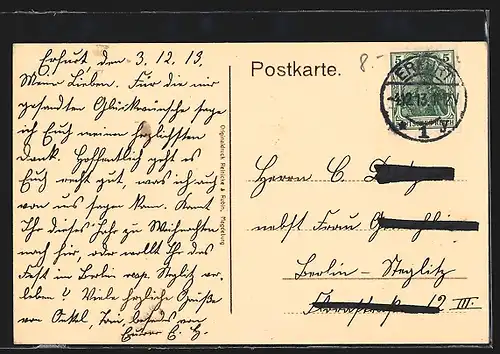 Erfurt, den 3.12.13.
Meine Lieben. Für die mir
gesandten Glückwünsche sage
ich Euch meinen herzlichsten
Dank. Hoffentlich geht es
Euch recht gut, was ich auch
von uns sagen kann. Kommt
Ihr dieses Jahr zu Weihnachten
nach hier, oder wollt Ihr das
Fest in Berlin resp. Steglitz ver-
leben? Viele herzliche Grüße
von Onkel, besonders von
Eurer E. H.
Originaldruck Magdeburg
Postkarte.
8.-
5 5
ERFURT
1
Herrn C.
nebst Frau
Berlin-Steglitz
12 III.